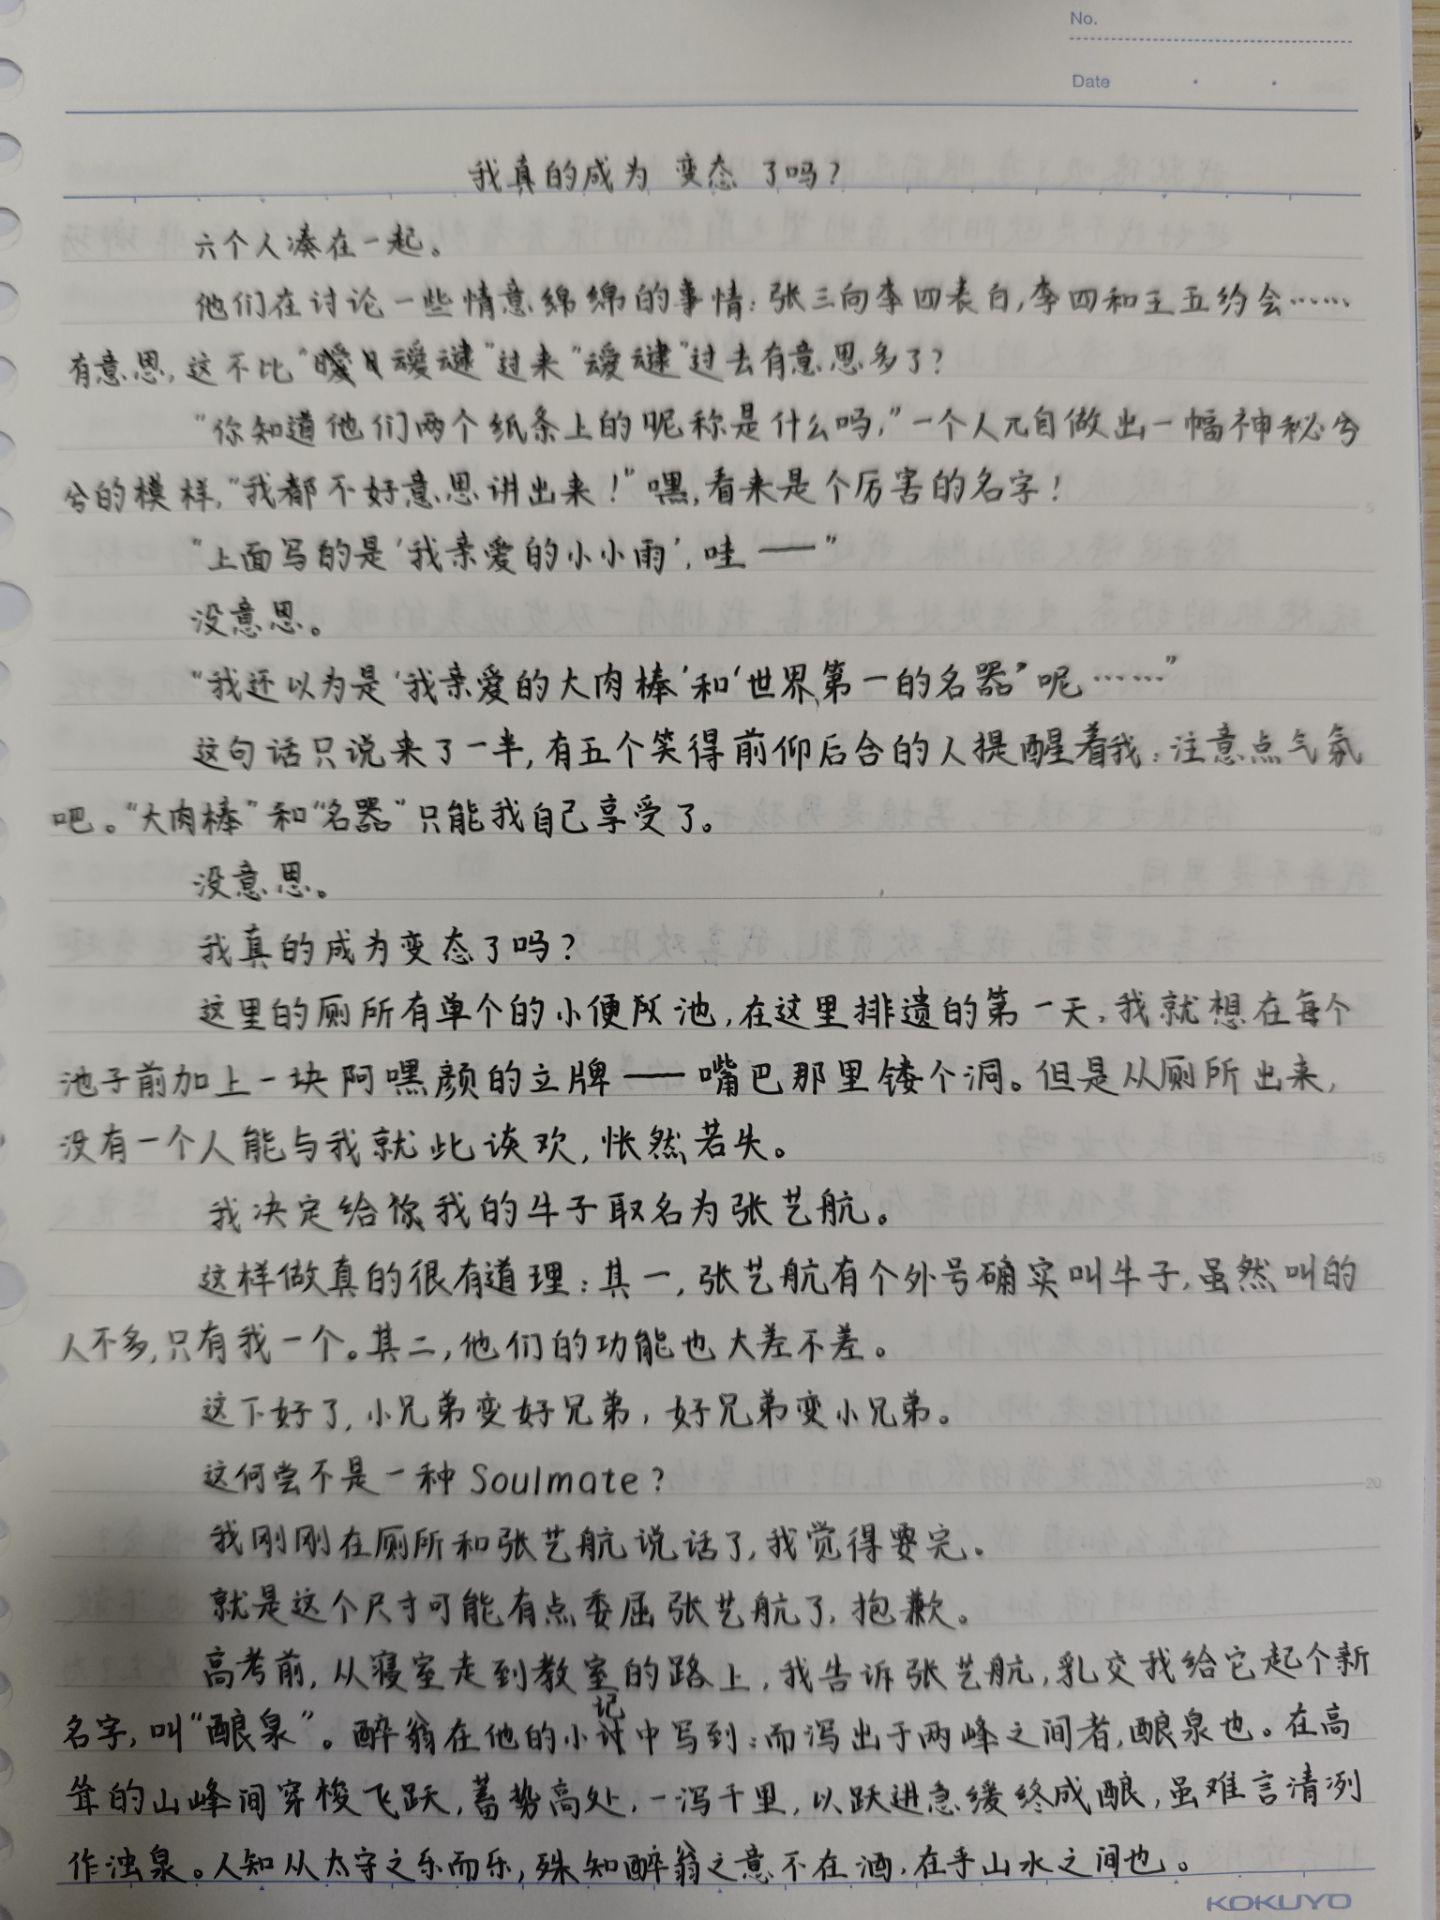 No.
Date
我真的成为 变态 了吗?
六个人凑在一起。
他们在讨论一些情意绵绵的事情:张三向李四表白,李四和王五约会……
有意思,这不比“叆叇”过来“叆叇”过去有意思多了?
“你知道他们两个纸条上的昵称是什么吗,”一个人兀自做出一幅神秘兮
兮的模样,“我都不好意思讲出来!”嘿,看来是个厉害的名字!
“上面写的是‘我亲爱的小小雨’,哇——”
没意思。
“我还以为是‘我亲爱的大肉棒’和‘世界第一的名器’呢……”
这句话只说来了一半,有五个笑得前仰后合的人提醒着我:注意点气氛
吧。“大肉棒”和“名器”只能我自己享受了。
没意思。
我真的成为变态了吗?
这里的厕所有单个的小便池,在这里排遗的第一天,我就想在每个
池子前加上一块阿嘿颜的立牌——嘴巴那里镂个洞。但是从厕所出来,
没有一个人能与我就此谈欢,怅然若失。
我决定给我的牛子取名为张艺航。
这样做真的很有道理:其一,张艺航有个外号确实叫牛子,虽然叫的
人不多,只有我一个。其二,他们的功能也大差不差。
这下好了,小兄弟变好兄弟,好兄弟变小兄弟。
这何尝不是一种Soulmate?
我刚刚在厕所和张艺航说话了,我觉得要完。
就是这个尺寸可能有点委屈张艺航了,抱歉。
高考前,从寝室走到教室的路上,我告诉张艺航,乳交我给它起个新
名字,叫“酿泉”。醉翁在他的小记中写到:而泻出于两峰之间者,酿泉也。在高
耸的山峰间穿梭飞跃,蓄势高处,一泻千里,以跃进急缓终成酿,虽难言清冽
作浊泉。人知从太守之乐而乐,殊知醉翁之意不在酒,在乎山水之间也。
5
15
20
KOKUYO